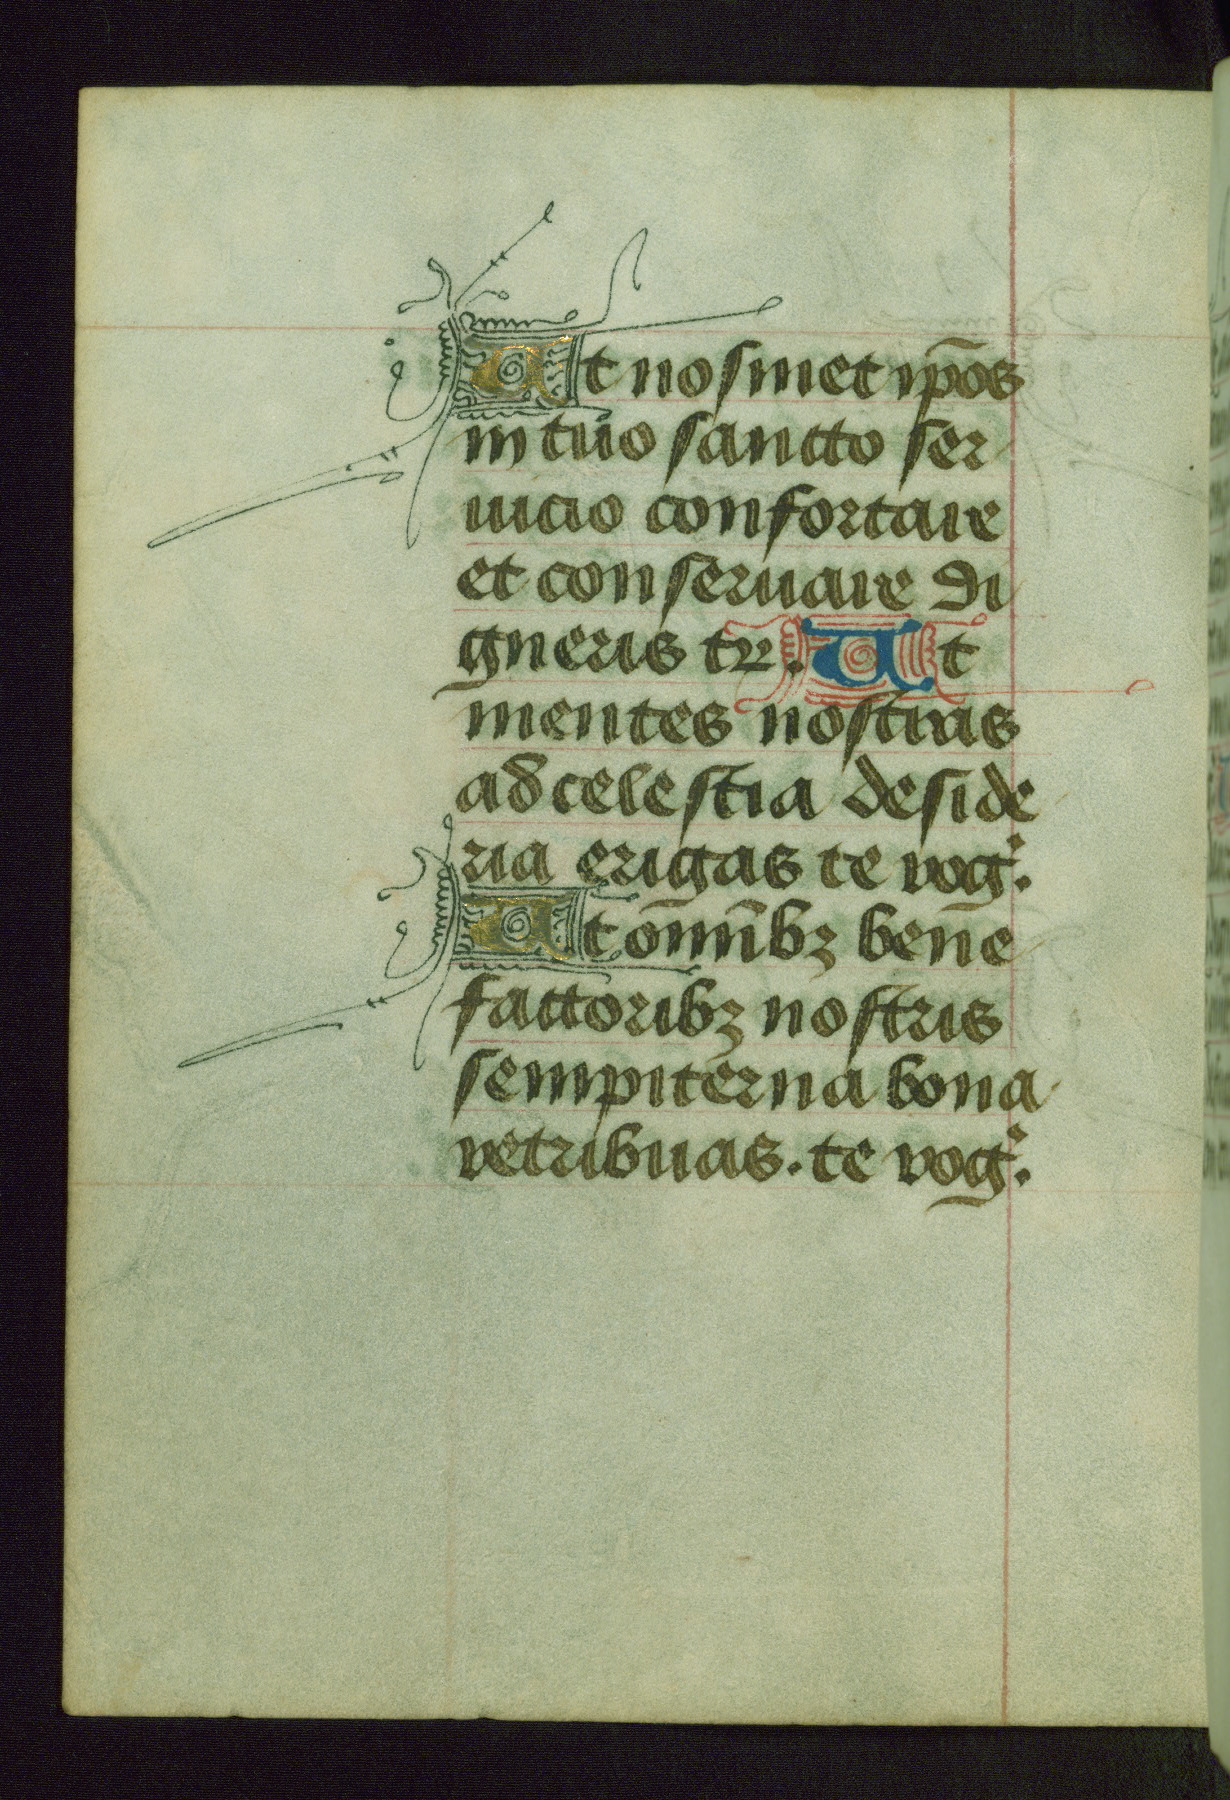 Ut nosmet ip̄os
in tuo sancto ser
uicio confortare
et conseruare di
gneris tr. Ut
mentes nostras
ad celestia deside
ria erigas te rog̾.
Ut om̄ibꝫ bene
factoribꝫ nostris
sempiterna bona
retribuas. te rog̾.